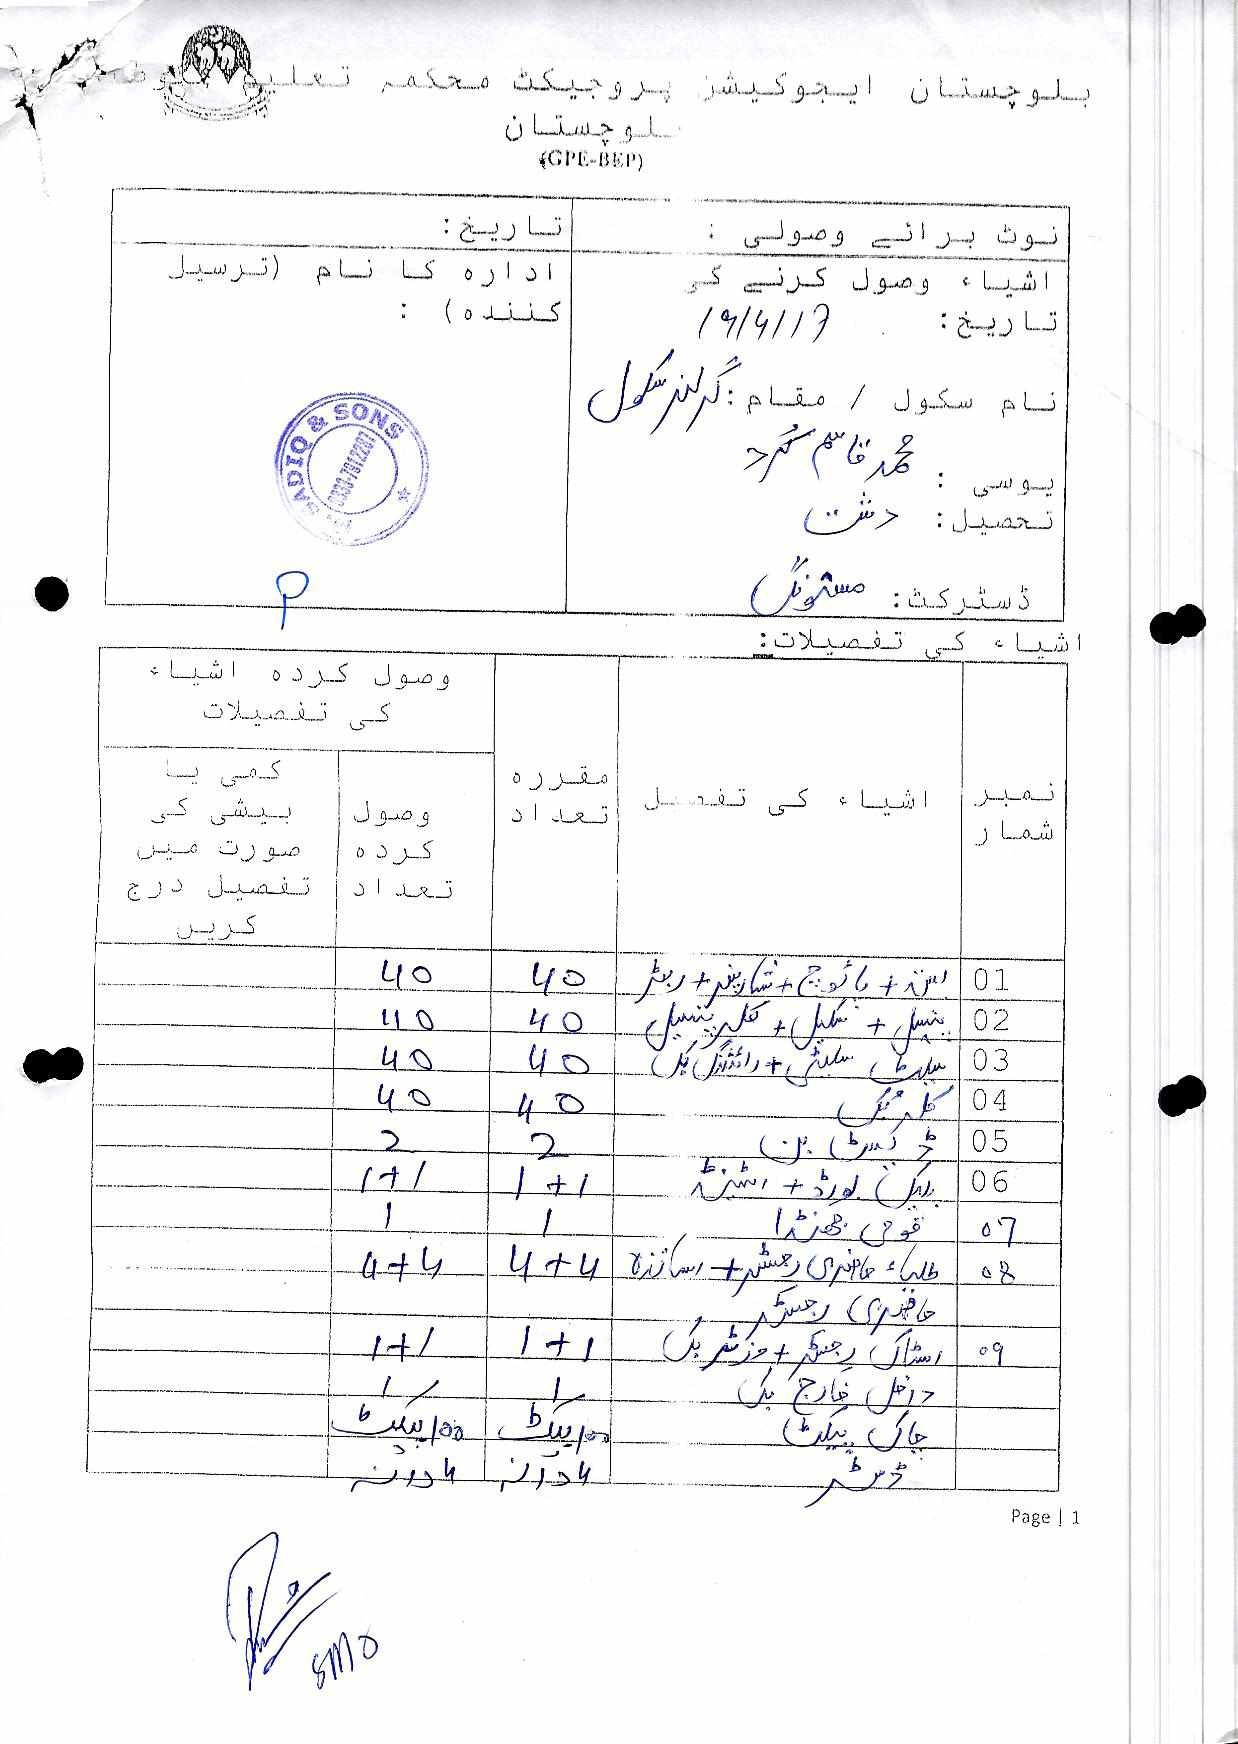 بلوچستان ایجوکیشنز پروجیکٹ محکمہ تعلیم
بلوچستان
(GPE-BEP)
نوٹ برائے وصولی :
تاریخ:
اشیاء وصول کرنے کی
تاریخ: 19/4/17
نام سکول / مقام: گرلز سکول
محمد قاسم
یوسی :
تحصیل: دشت
ڈسٹرکٹ: مستونگ
ادارہ کا نام (ترسیل
کنندہ) :
SADIQ & SONS
0333-7912201
اشیاء کی تفصیلات:
نمبر شمار
اشیاء کی تفصیل
مقررہ تعداد
وصول کردہ اشیاء کی تفصیلات
وصول کردہ تعداد
کمی یا بیشی کی صورت میں تفصیل درج کریں
01 + پاؤچ + شارپنر + ربڑ 40 40
02 پنسل + سکیل + کلر پنسل 40 40
03 سلیٹ سلیٹی + رائٹنگ بک 40 40
04 کلر بک 40 40
05 ڈسٹ بن 2 2
06 بلیک بورڈ + اسٹینڈ 1+1 1+1
07 قومی جھنڈا 1 1
08 طلباء حاضری رجسٹر + اساتذہ 4+4 4+4
حاضری رجسٹر
09 اسٹاک رجسٹر + وزٹر بک 1+1 1+1
داخل خارج بک 1 1
چاک پیکٹ 100/پیکٹ 100/پیکٹ
ڈسٹر 4 درزن 4 درزن
Page | 1
SMO